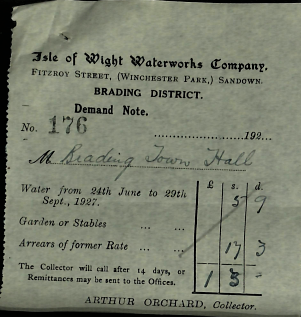 Isle of Wight Waterworks Company.
FITZROY STREET, (WINCHESTER PARK,) SANDOWN.
BRADING DISTRICT.
Demand Note.
No. 176
....................192...
M Brading Town Hall
£ s. d.
Water from 24th June to 29th
Sept., 1927. 5 9
Garden or Stables ... ...
Arrears of former Rate ... ... 17 3
The Collector will call after 14 days, or
Remittances may be sent to the Offices. 1 3 -
ARTHUR ORCHARD, Collector.